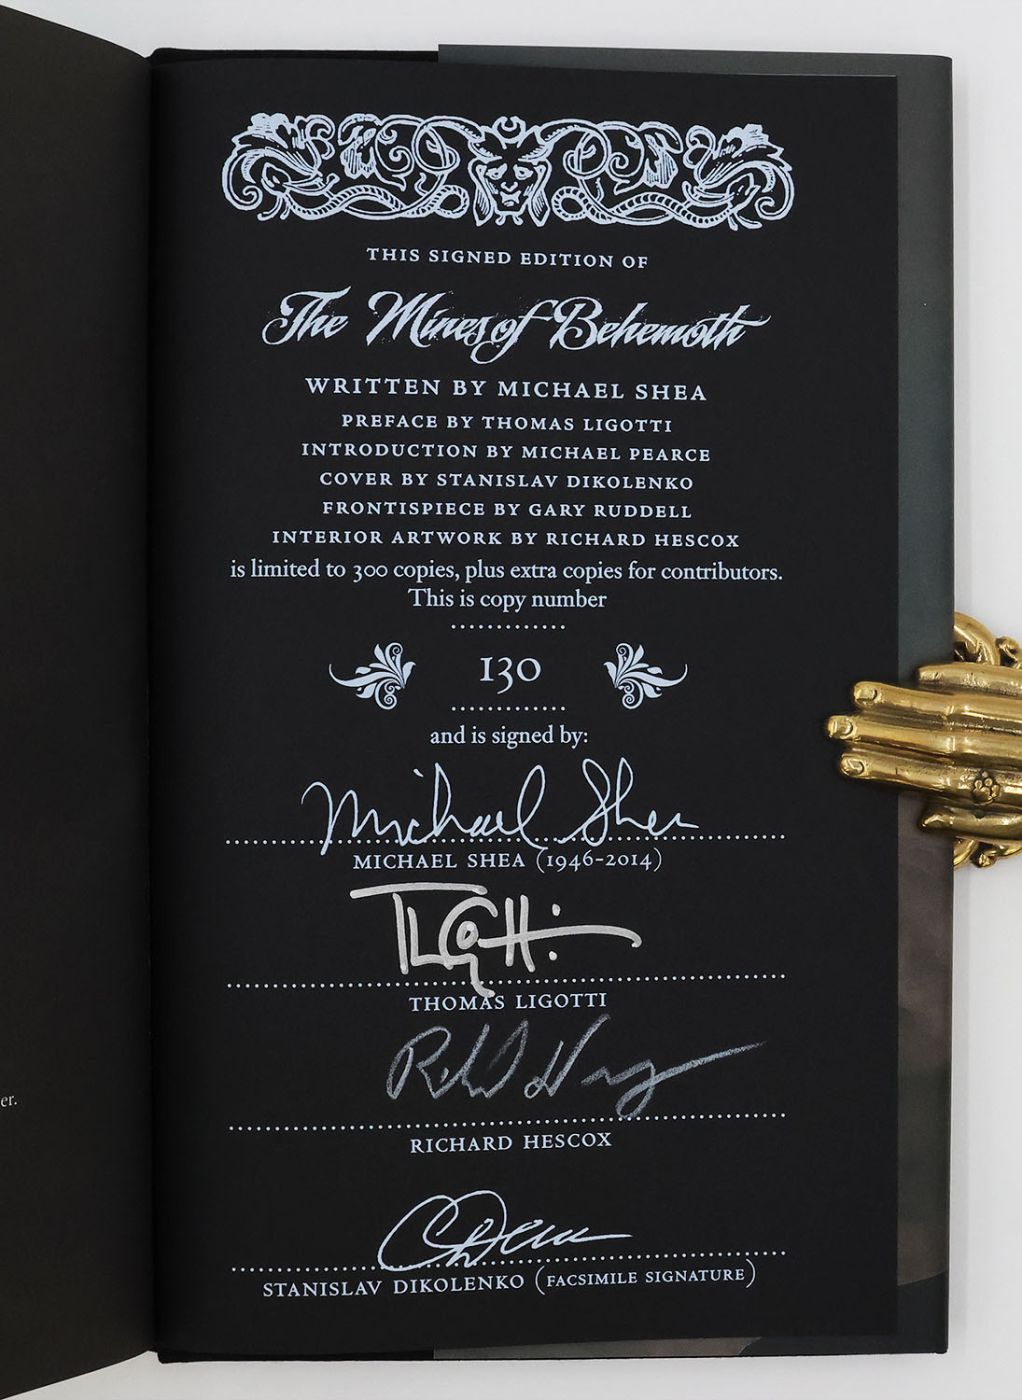 THIS SIGNED EDITION OF
The Mines of Behemoth
WRITTEN BY MICHAEL SHEA
PREFACE BY THOMAS LIGOTTI
INTRODUCTION BY MICHAEL PEARCE
COVER BY STANISLAV DIKOLENKO
FRONTISPIECE BY GARY RUDDELL
INTERIOR ARTWORK BY RICHARD HESCOX
is limited to 300 copies, plus extra copies for contributors.
This is copy number
130
and is signed by:
Michael Shea
MICHAEL SHEA (1946-2014)
THOMAS LIGOTTI
RICHARD HESCOX
STANISLAV DIKOLENKO (FACSIMILE SIGNATURE)
er.